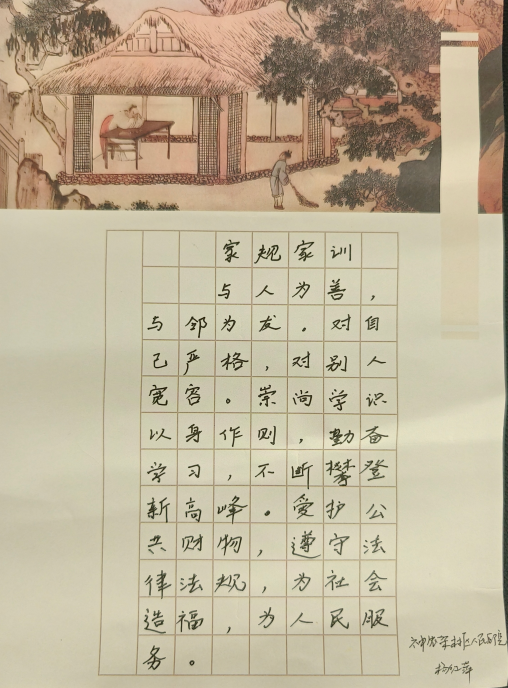 家规家训
与人为善，
与邻为友。对自
己严格，对别人
宽容。崇尚学识
以身作则，勤奋
学习，不断攀登
新高峰。爱护公
共财物，遵守法
律法规，为社会
造福，为人民服
务。
人民
杨红萍